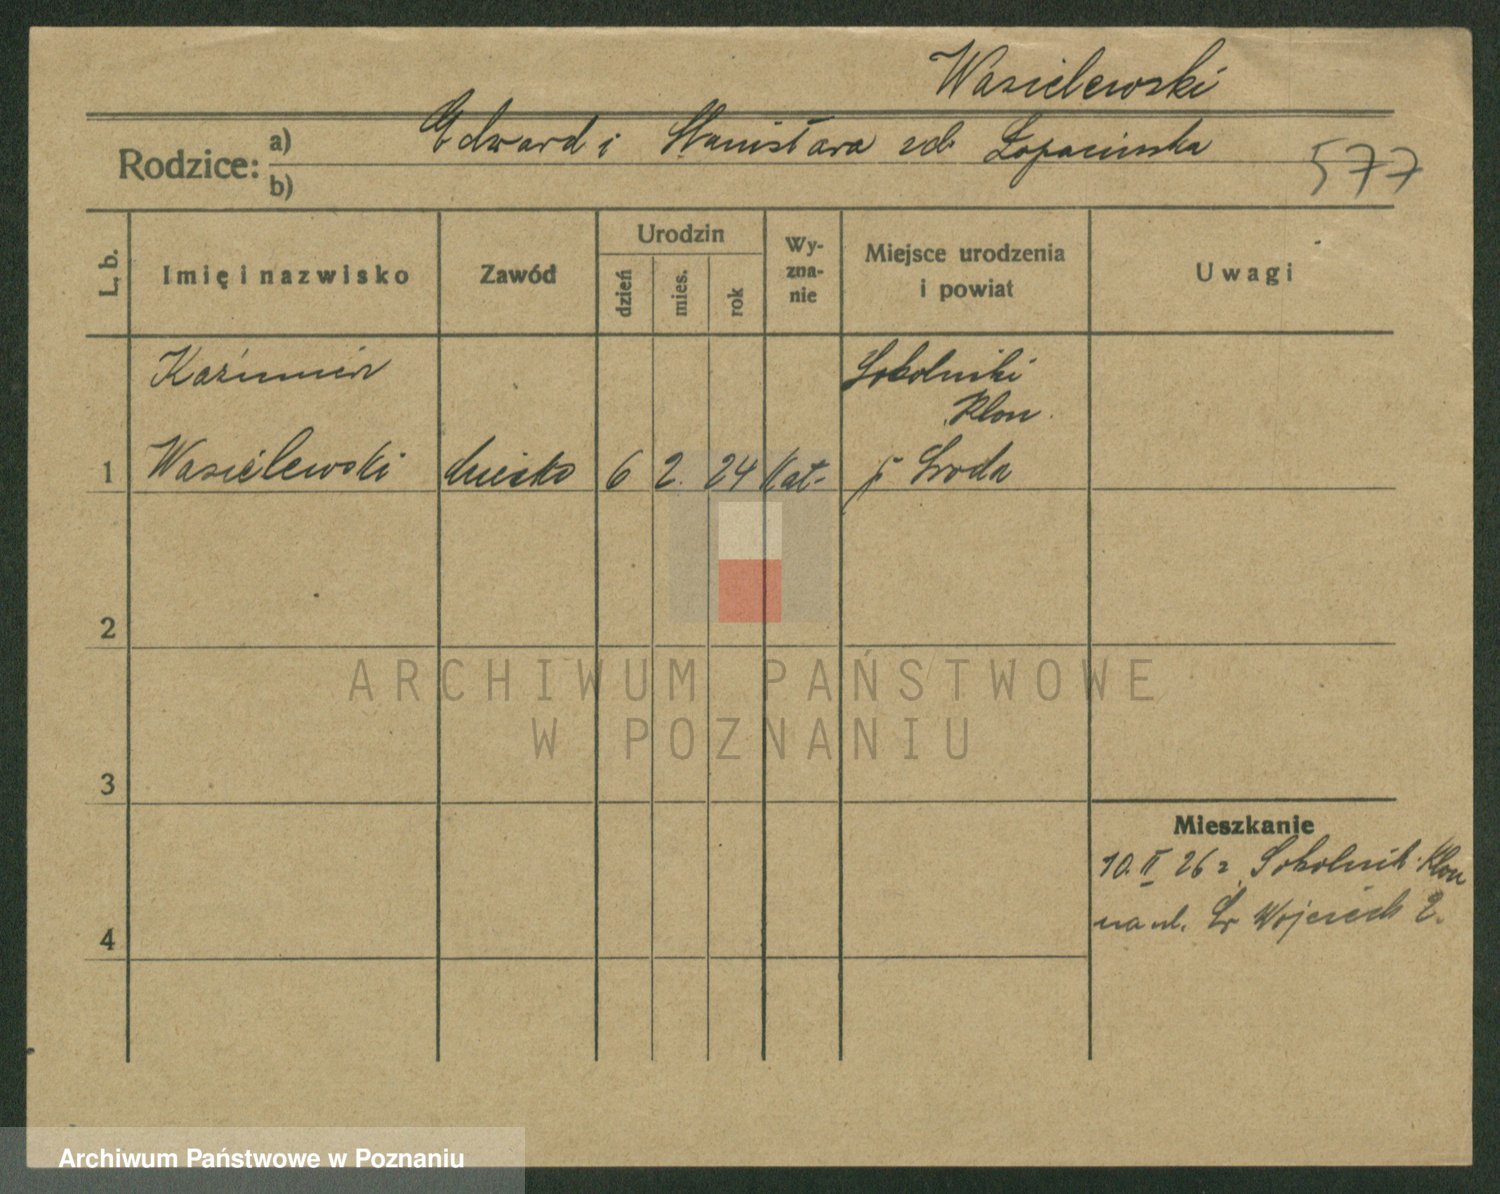 Wasielewski
Rodzice: a) Edward i Stanisława zd. Łopacinska
b)
577
L. b.
Imię i nazwisko
Zawód
Urodzin
dzień
mies.
rok
Wy-
zna-
nie
Miejsce urodzenia
i powiat
Uwagi
Kaźimierz
Sokolniki
Klon.
1 Wasielewski dziecko 6 2. 24 Kat- p Środa
2
ARCHIWUM PAŃSTWOWE
W POZNANIU
3
Mieszkanie
10. II 26 r. Sokolnik. Klon
na ul. Św Wojciech 2.
4
Archiwum Państwowe w Poznaniu